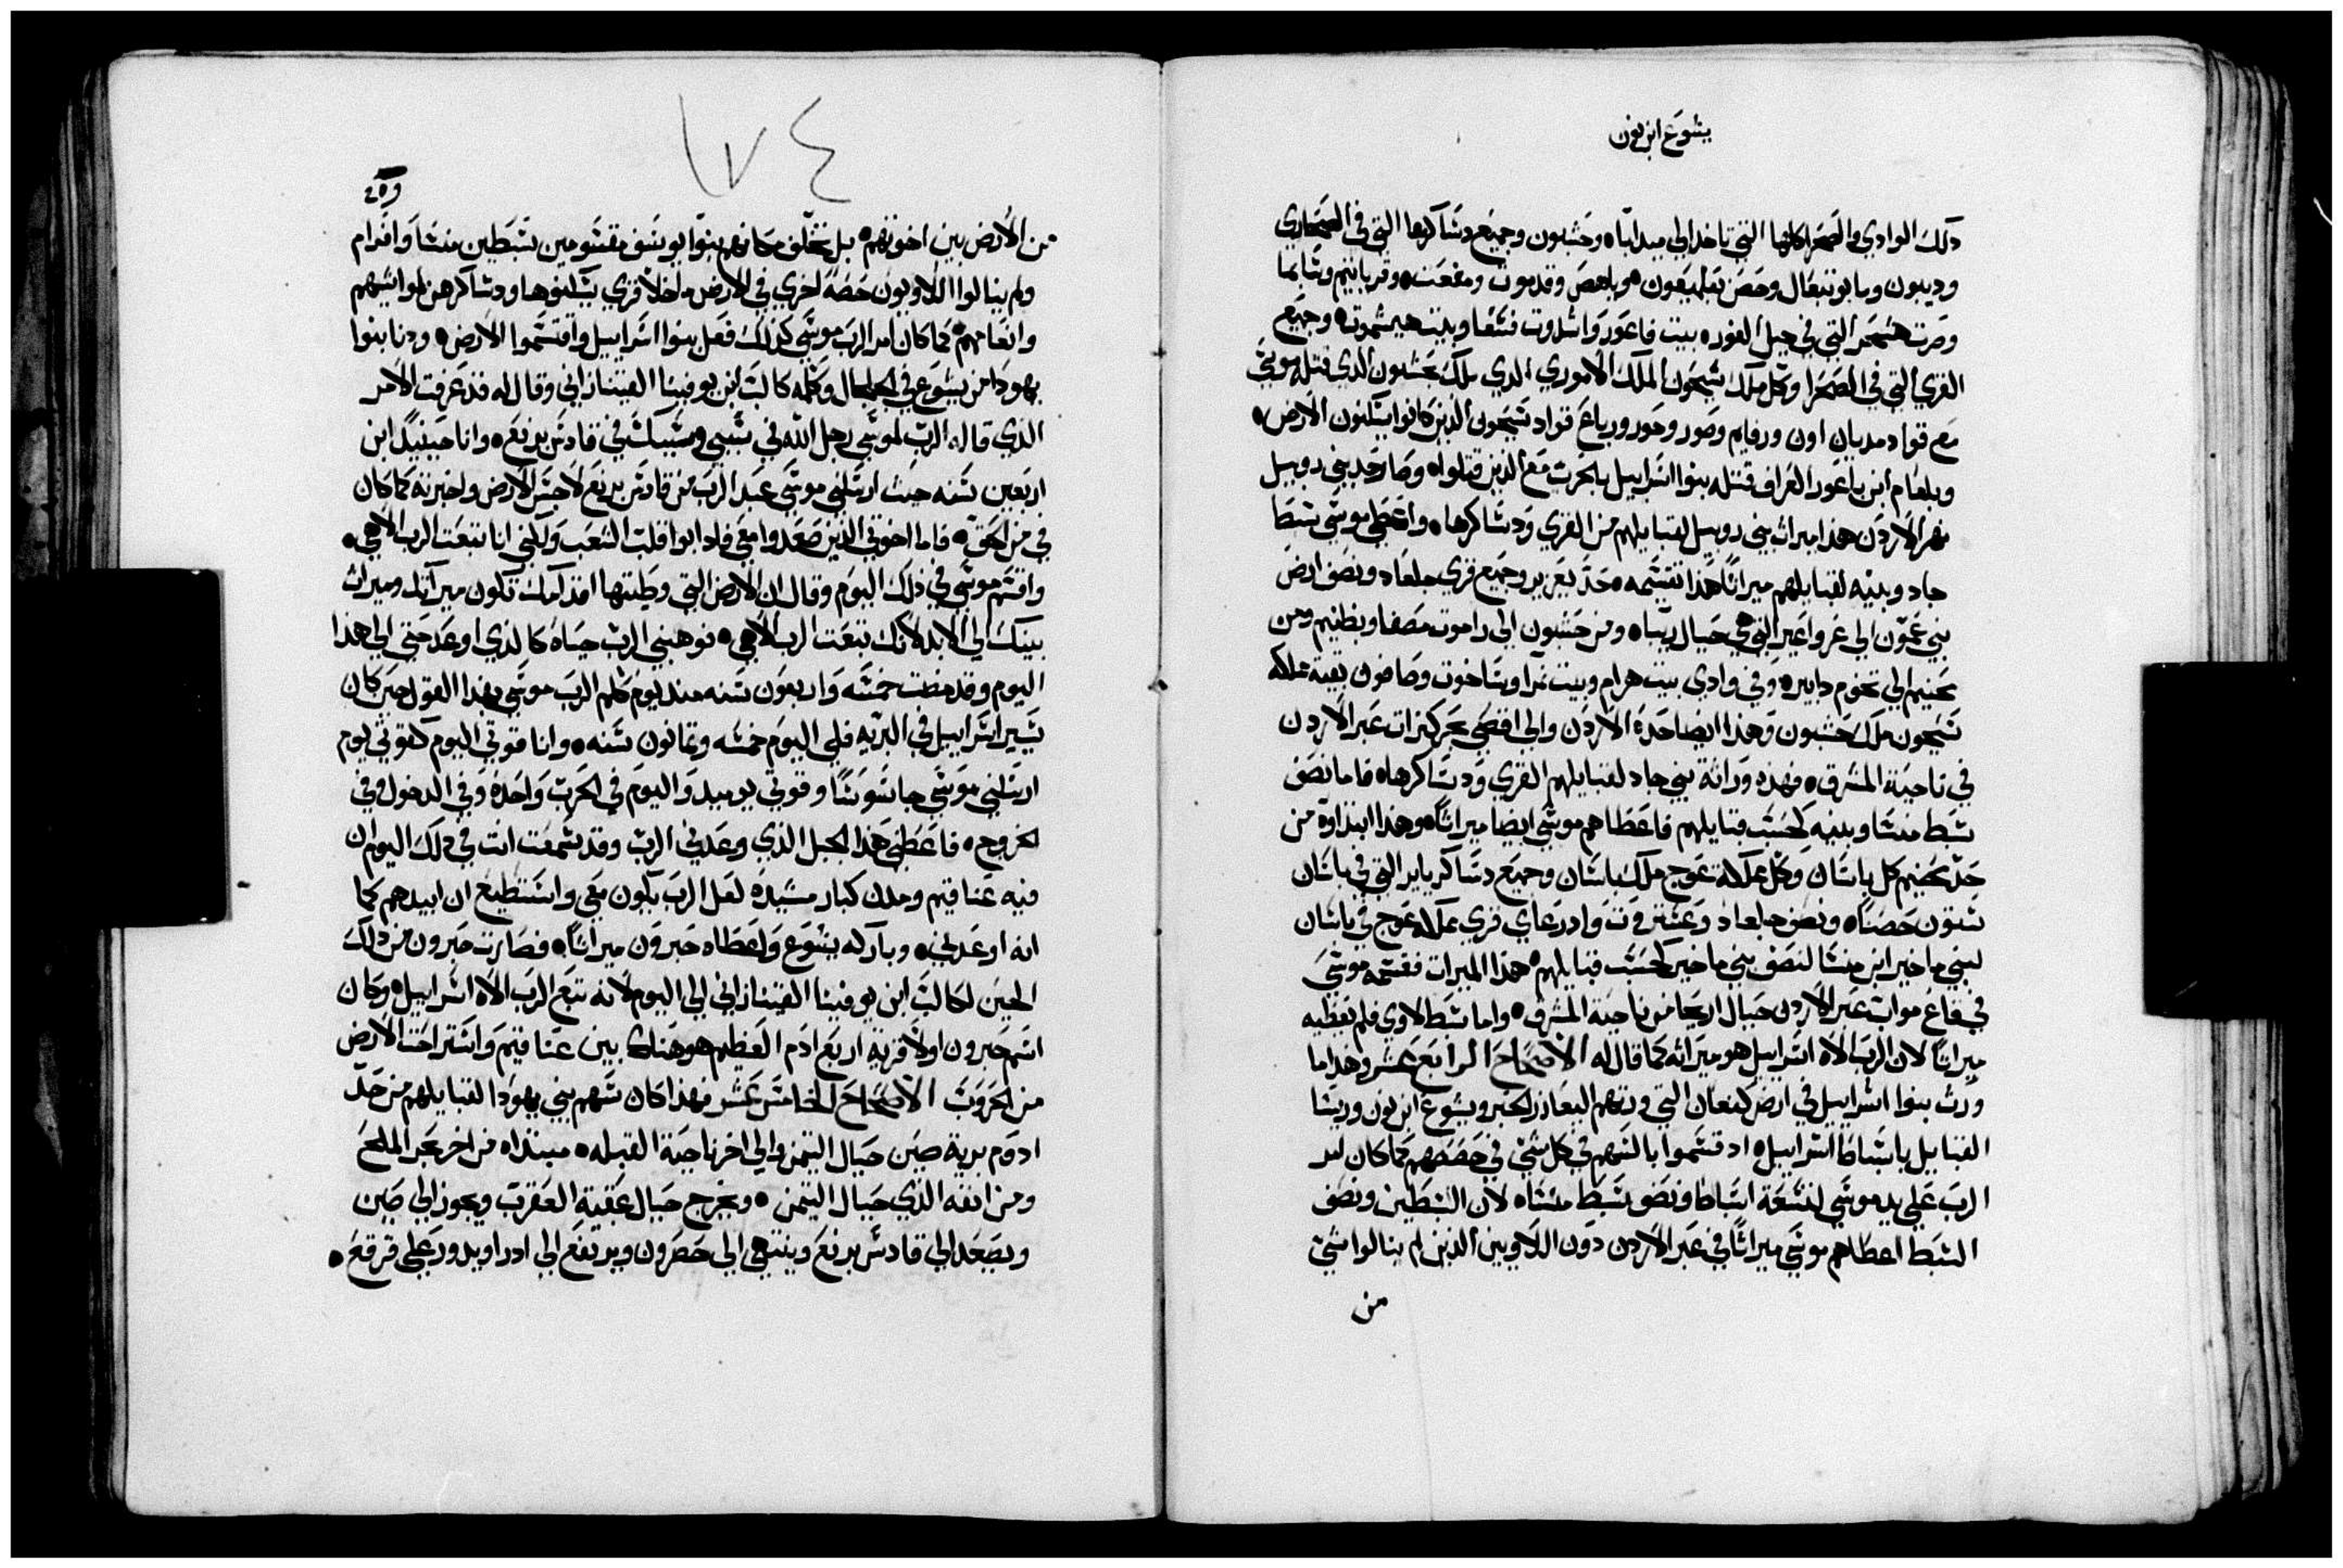 يشوع ابن نون
ذلك الوادي والصحرا كلها التي تاخد الي ميدابا ٥ وحشبون وجميع دساكرها التي في الصحاري
وديبون وبابوتبعال وحصن بعلمعون ٥ وياهص وقدموت ومفعت ٥ وقرياتيم وسابما
وصرت هسحر التي في جبل الغور ٥ بيت فاعور واشدوت فسغا وبيت هيشموت ٥ وجميع
القري التي في الصحرا وكل ملك سيحون الملك الاموري الذي ملك بحشبون الذي قتله موسي
مع قواد مديان اون ورقام وصور وحور ورباع قواد سيحون الذين كانوا يسكنون الارض ٥
وبلعام ابن باعور العراف قتله بنوا اسراييل بالحرب مع الذين قتلوا ٥ وصار حد بني روبيل
نهر الاردن هذا ميراث بني روبيل لقبايلهم من القري ودساكرها ٥ واعطي موسي سبط
جاد وبنيه لقبايلهم ميراثا هذا تقسمه حد يعزير وجميع قري جلعاد ونصف ارض
بني عمون الي عرواعير التي هي حيال ربا ٥ ومن حشبون الي راموت مصفا وبطنيم ومن
محنيم الي تخوم دابير ٥ وفي وادي بيت هرام وبيت نمرا وساخوت وصافون بقية مملكة
سيحون ملك حشبون وهذا ايضا حده الاردن والي اقصي بحر كنرات عبر الاردن
في ناحية المشرق ٥ فهذه وراثة بني جاد لقبايلهم القري ودساكرها ٥ فاما نصف
سبط منسا وبنيه كحسب قبايلهم فاعطاهم موسي ايضا ميراثا ٥ وهذا ابتداوه من
حد محنيم كل باسان وكل مملكة عوج ملك باسان وجميع دساكر ياير التي في باسان
ستون حصنا ٥ ونصف جلعاد وعستروت وادرعاي قري مملكة عوج في باسان
لبني ماخير ابن منسا لنصف بني ماخير كحسب قبايلهم ٥ هذا الميرات فقسمه موسي
في قاع مواب عبر الاردن حيال اريحا من ناحية المشرق ٥ واما سبط لاوي فلم يعطيه
ميراثا لان الرب الاه اسراييل هو ميراثه كما قال له الاصحاح الرابع عشر وهذا ما
ورث بنوا اسراييل في ارض كنعان التي ورثهم اليعازر الحبر ويشوع ابن نون وريسا
القبايل باسباط اسراييل ٥ اد قسموا بالسهم في كل شي في حصصهم كما كان امر
الرب علي يد موسي لتسعة اسباط ونصف سبط منسا ٥ لان السبطين ونصف
السبط اعطاهم موسي ميراثا في عبر الاردن دون اللاويين الذين لم ينالوا شي
من
١٧٤
من الارض بين اخوتهم ٥ بل تخلف مكانهم بنوا يوسف مقسومين بسبطين منسا وافرام
ولم ينالوا اللاويون حصة اخري في الارض ماخلا قري يسكنوها ودساكرهن لمواشيهم
وانعامهم ٥ كما كان امر الرب موسي كذلك فعل بنوا اسراييل واقتسموا الارض ٥ ودنا بنوا
يهودا من يشوع في الجلجال وكلمه كالب ابن يوفنيا القينازاني وقال له قد عرفت الامر
الذي قاله الرب لموسي رجل الله في سببي وسببك في قادس برنع ٥ وانا حينيد ابن
اربعين سنه حيث ارسلني موسي عبد الرب من قادس برنع لاجس الارض واخبرته كما كان
في من الحق ٥ فاما اخوتي الذين صعدوا معي فادابوا قلب الشعب ولكني انا تبعت الرب الاهي ٥
واقسم موسي في ذلك اليوم وقال ان الارض التي وطيتها اقدامك تكون ميراتك وميراث
بنيك الي الابد لانك تبعت الرب الاهي ٥ فوهبني الرب حياه كالذي اوعد حتي الي هذا
اليوم وقد مضت خمسه واربعون سنه منذ يوم كلم الرب موسي بهذا القول حين كان
يسير اسراييل في البريه فلي اليوم خمسه وتمانون سنه ٥ وانا قوتي اليوم كقوتي يوم
ارسلني موسي جاسوسا وقوتي يوميد واليوم في الحرب واحده وفي الدخول وفي
الخروج ٥ فاعطني هذا الجبل الذي وعدني الرب وقد سمعت انت في ذلك اليوم ان
فيه عناقيم ومدن كبار مشيده لعل الرب يكون معي واستطيع ان ابيدهم كما
انه اوعدني ٥ وباركه يشوع واعطاه حبرون ميراثا ٥ فصارت حبرون من ذلك
الحين لكالب ابن يوفنيا القينازاني الي اليوم لانه تبع الرب الاه اسراييل ٥ وكان
اسم حبرون اولا قرية اربع ادم العظيم هو هناك بين عناقيم واستراحت الارض
من الحروب الاصحاح الخامس عشر فهذا كان سهم بني يهودا لقبايلهم من حد
ادوم برية صين حيال التيمن والي اخر ناحية القبله ٥ مبتداه من اخر بحر الملح
ومن انفه الذي حيال التيمن ٥ ويخرج حيال عقبة العقرب ويجوز الي صين
ويصعد الي قادس برنع وينتهي الي حصرون ويرتفع الي ادرا ويدور علي قرقع ٥